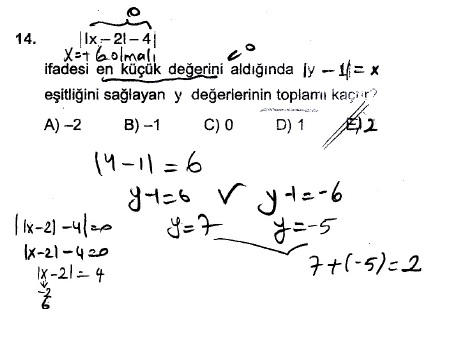 0
14. ||x – 2| – 4|
x=+6 olmalı
0
ifadesi en küçük değerini aldığında |y – 1| = x
eşitliğini sağlayan y değerlerinin toplamı kaçtır?
A) –2 B) –1 C) 0 D) 1 E) 2
|y-1| = 6
y-1=6 ✓ y-1=-6
y=7 y=-5
7+(-5)=2
||x-2|-4|=0
|x-2|-4=0
|x-2|=4
-2
6